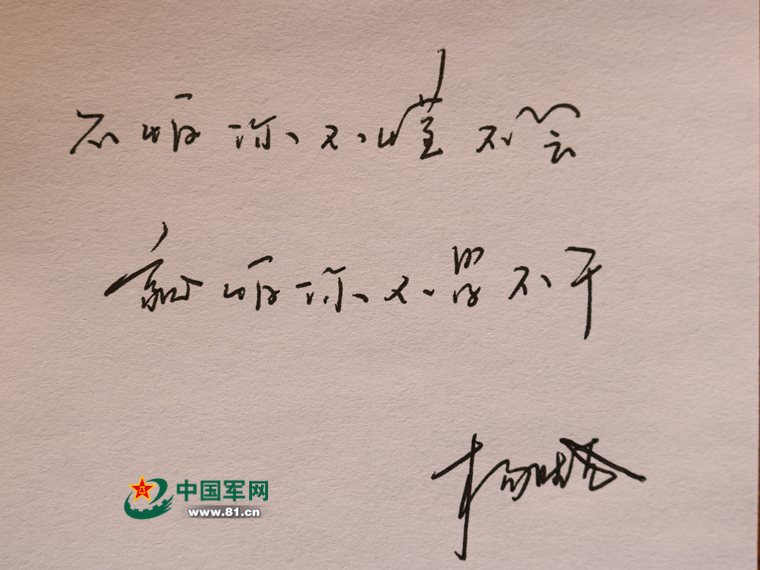 不怕你不懂不会
就怕你不学不干
中国军网
www.81.cn